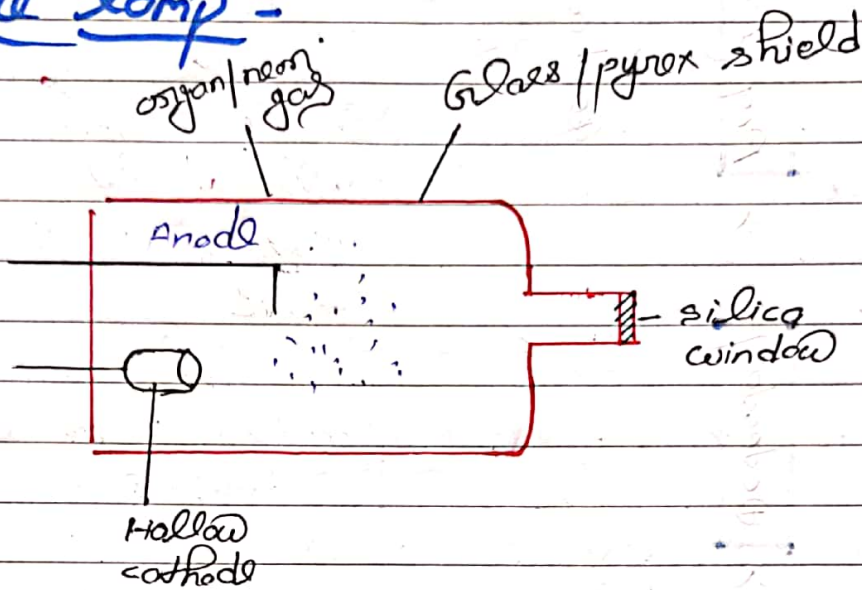 Lamp -
argon/neon
gas
Glass/pyrex shield
Anode
silica
window
Hollow
cathode